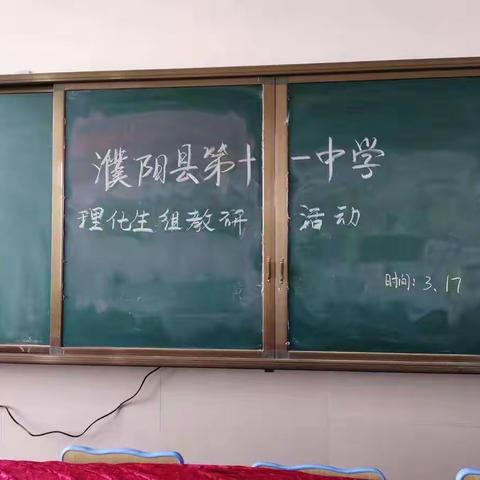 濮阳县第十一中学
理化生组教研活动
时间:3、17